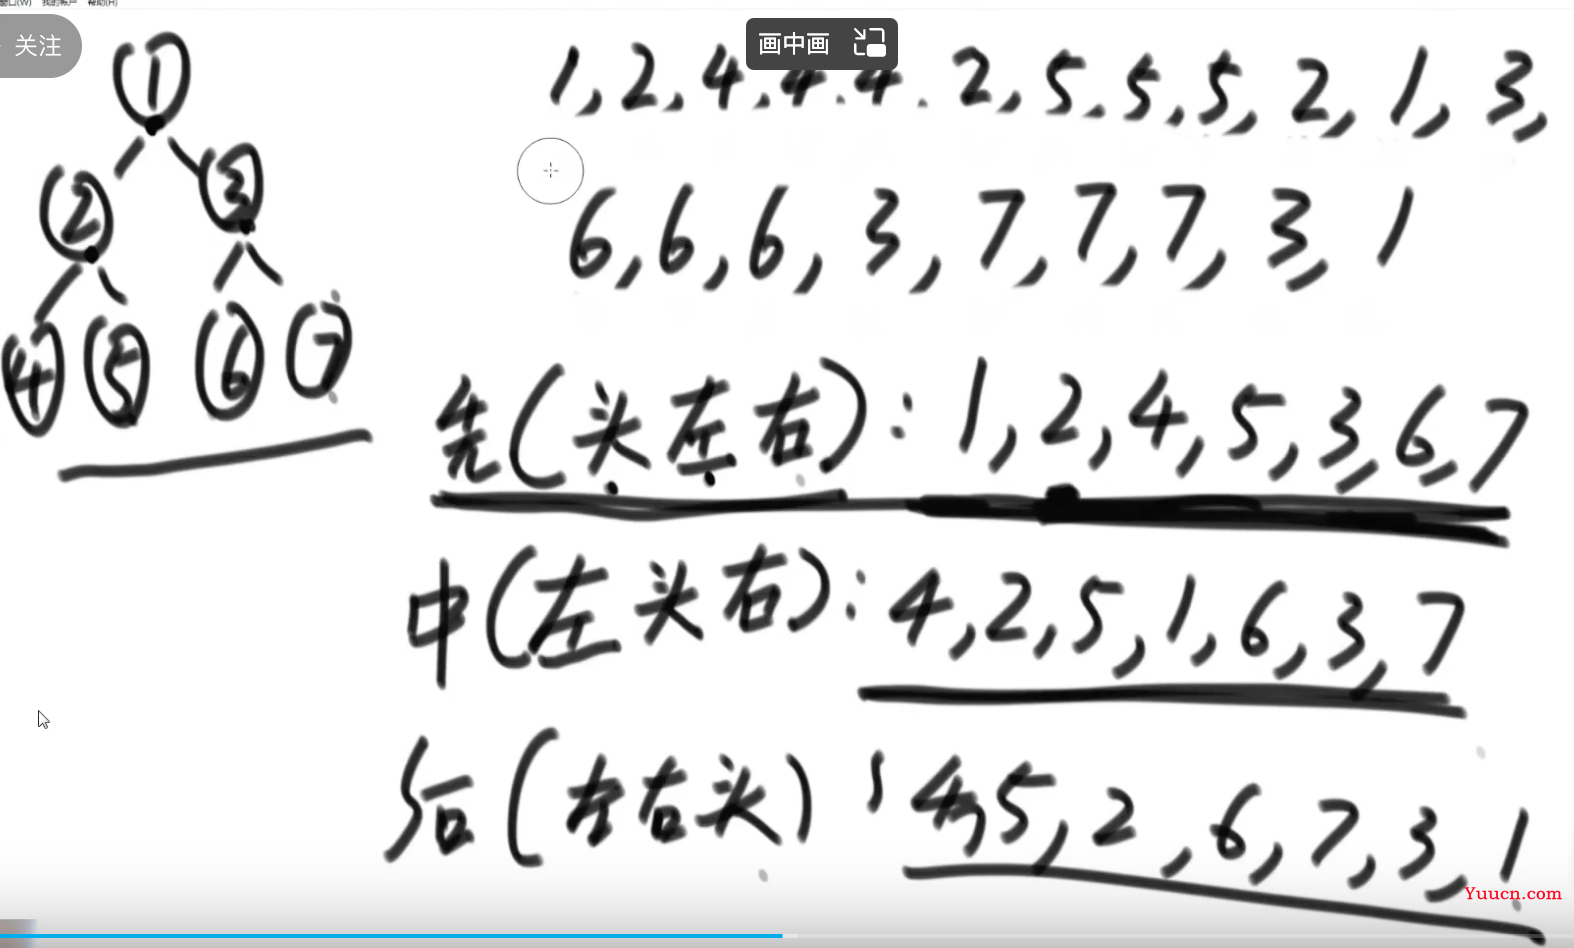 窗口(W) 我的帐户 帮助(H)
关注
画中画
1
2 3
4 5 6 7
1,2,4,4.4.2,5.5.5,2,1,3,
6,6,6,3,7,7,7,3,1
先(头左右):1,2,4,5,3,6,7
中(左头右):4,2,5,1,6,3,7
后(左右头):4,5,2,6,7,3,1
Yuucn.com